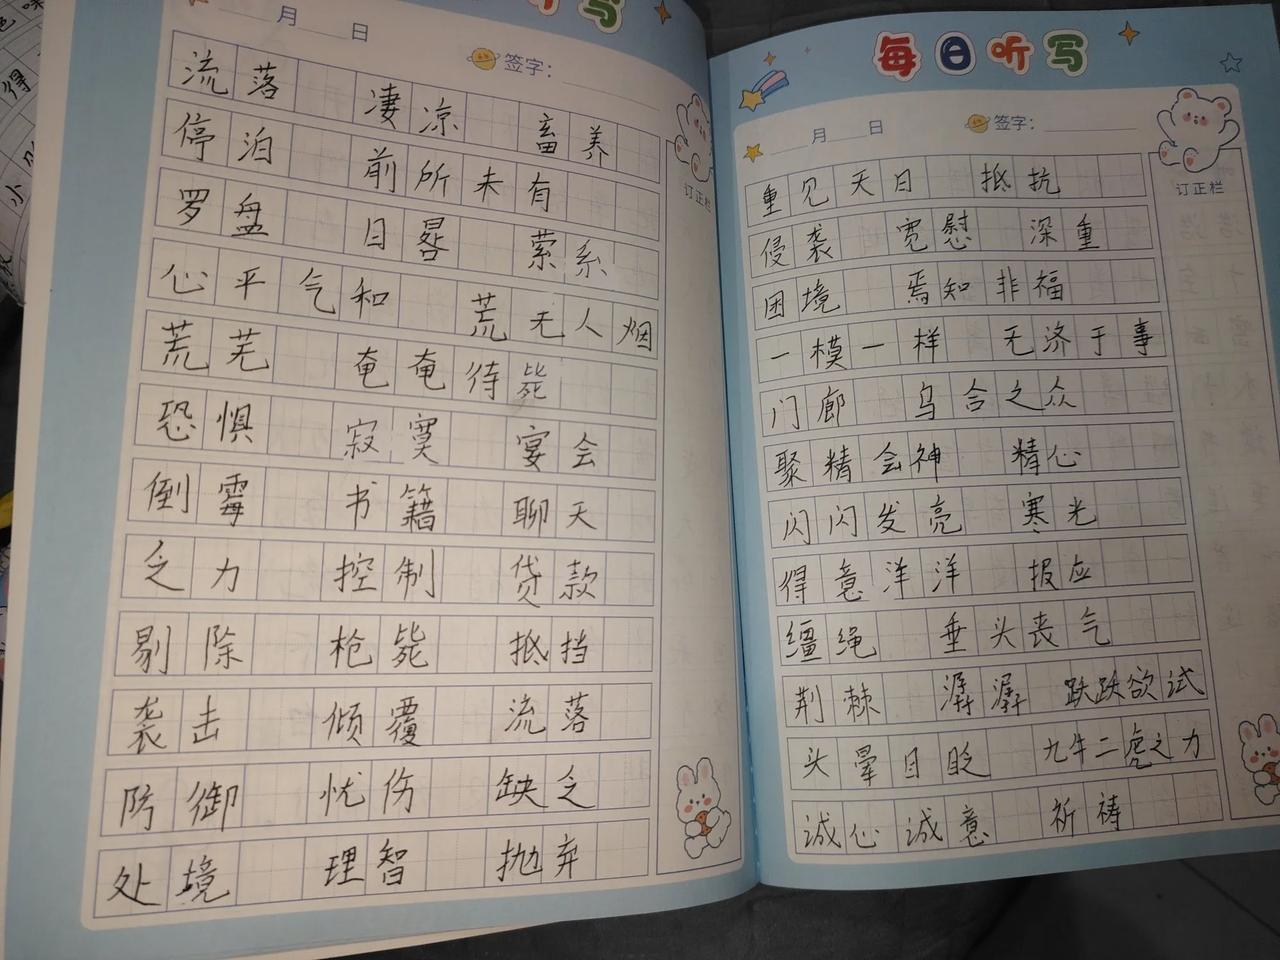 听写
月 日
签字:
流落 凄凉 畜养
停泊 前所未有
罗盘 日晷 萦系
心平气和 荒无人烟
荒芜 奄奄待毙
恐惧 寂寞 宴会
倒霉 书籍 聊天
乏力 控制 贷款
剔除 枪毙 抵挡
袭击 倾覆 流落
防御 忧伤 缺乏
处境 理智 抛弃
订正栏
每日听写
月 日
签字:
重见天日 抵抗
侵袭 宽慰 深重
困境 焉知非福
一模一样 无济于事
门廊 乌合之众
聚精会神 精心
闪闪发亮 寒光
得意洋洋 报应
缰绳 垂头丧气
荆棘 潺潺 跃跃欲试
头晕目眩 九牛二虎之力
诚心诚意 祈祷
订正栏
得
小